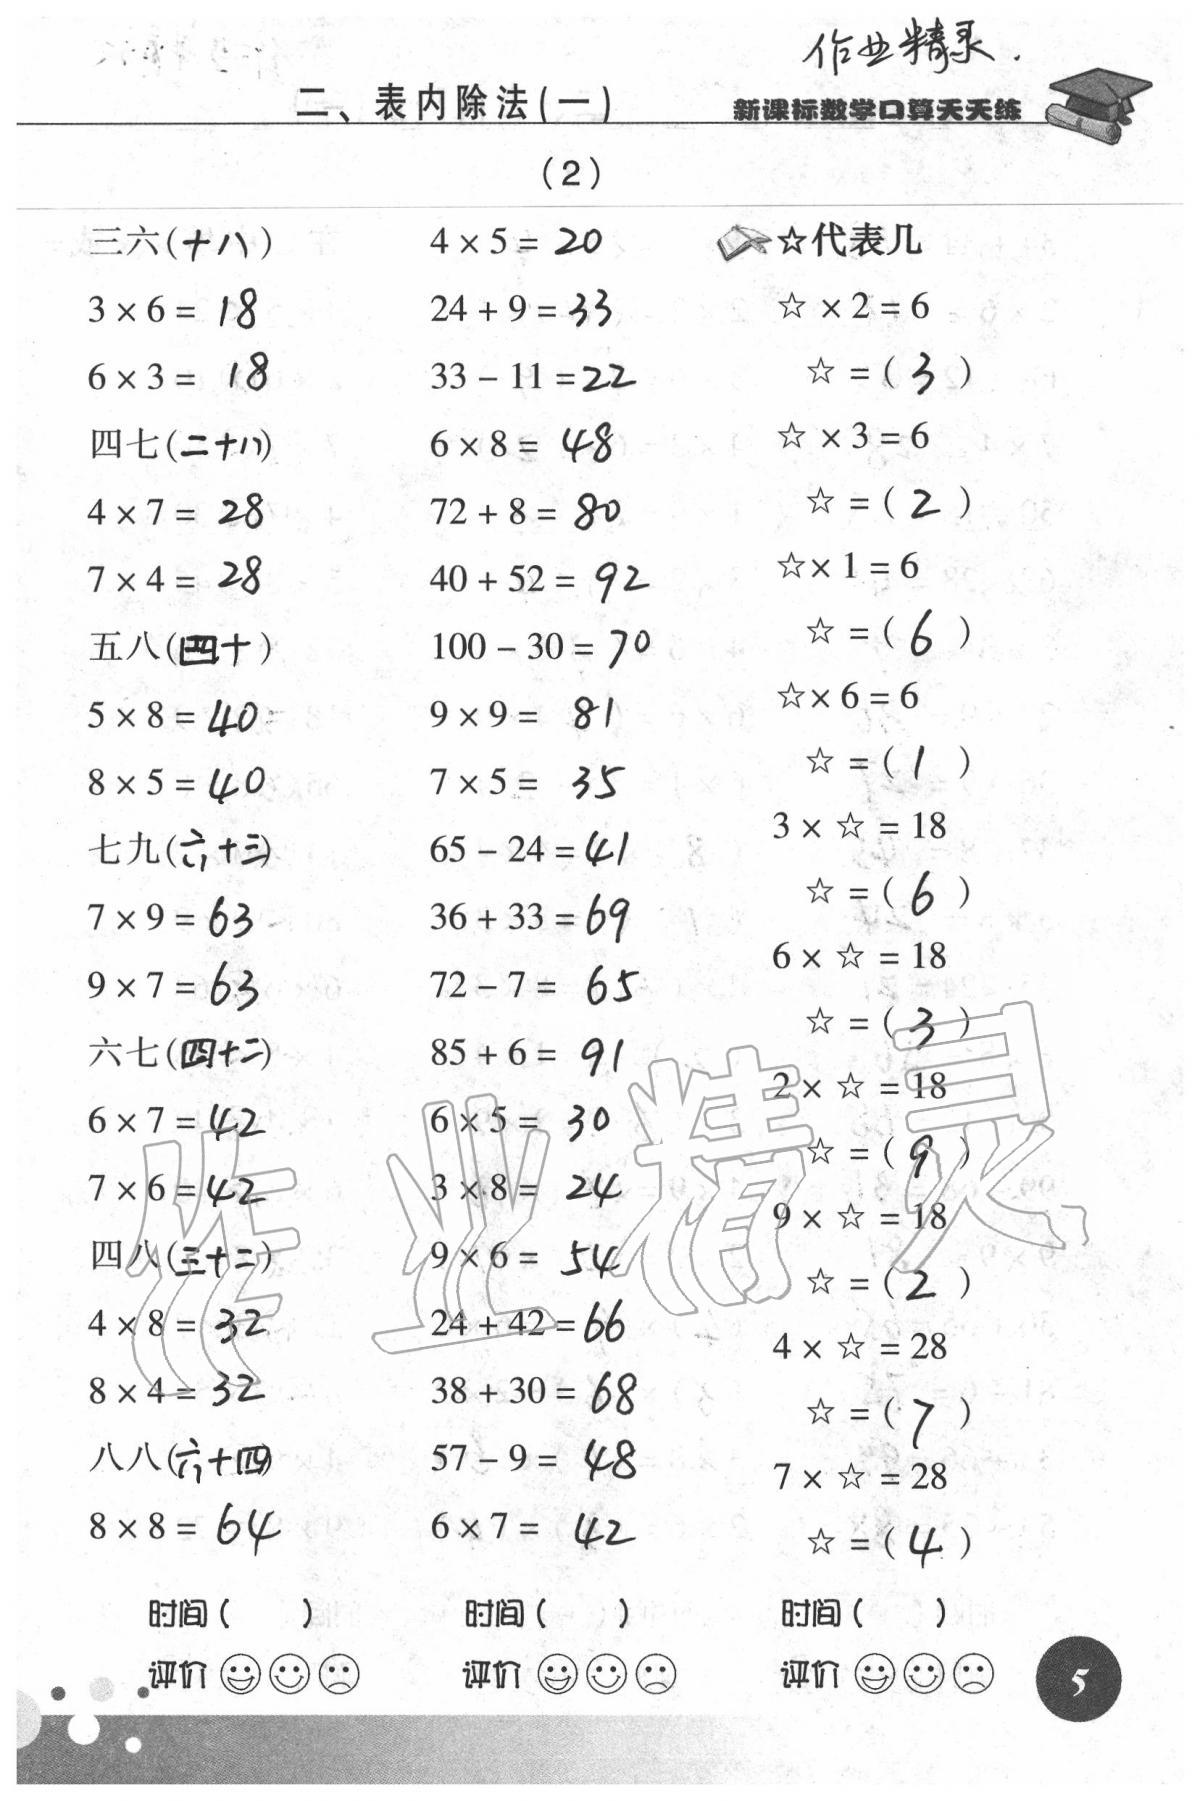 作业精灵.
二、表内除法(一)
新课标数学口算天天练
(2)
三六(十八)
3×6=18
6×3=18
四七(二十八)
4×7=28
7×4=28
五八(四十)
5×8=40
8×5=40
七九(六十三)
7×9=63
9×7=63
六七(四十二)
6×7=42
7×6=42
四八(三十二)
4×8=32
8×4=32
八八(六十四)
8×8=64
时间( )
评价
4×5=20
24+9=33
33-11=22
6×8=48
72+8=80
40+52=92
100-30=70
9×9=81
7×5=35
65-24=41
36+33=69
72-7=65
85+6=91
6×5=30
3×8=24
9×6=54
24+42=66
38+30=68
57-9=48
6×7=42
时间( )
评价
☆代表几
☆×2=6
☆=(3)
☆×3=6
☆=(2)
☆×1=6
☆=(6)
☆×6=6
☆=(1)
3×☆=18
☆=(6)
6×☆=18
☆=(3)
2×☆=18
☆=(9)
9×☆=18
☆=(2)
4×☆=28
☆=(7)
7×☆=28
☆=(4)
时间( )
评价
5
作业精灵